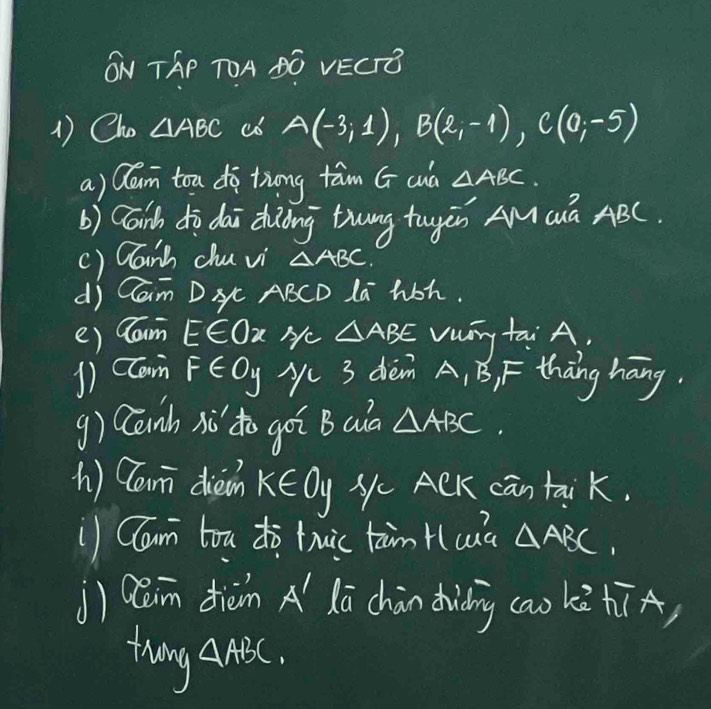 ÔN TẬP TỌA ĐỘ VECTƠ
1) Cho △ABC có A(-3; 1), B(2; -1), C(0; -5)
a) Tìm tọa độ trọng tâm G của △ABC.
b) Tính độ dài đường trung tuyến AM của ABC.
c) Tính chu vi △ABC.
d) Tìm D s/c ABCD là hbh.
e) Tìm E∈Ox s/c △ABE vuông tại A.
f) Tìm F∈Oy s/c 3 điểm A, B, F thẳng hàng.
g) Tính số đo góc B của △ABC.
h) Tìm điểm K∈Oy s/c ACK cân tại K.
i) Tìm tọa độ trực tâm H của △ABC.
j) Tìm điểm A' là chân đường cao kẻ từ A,
trong △ABC.